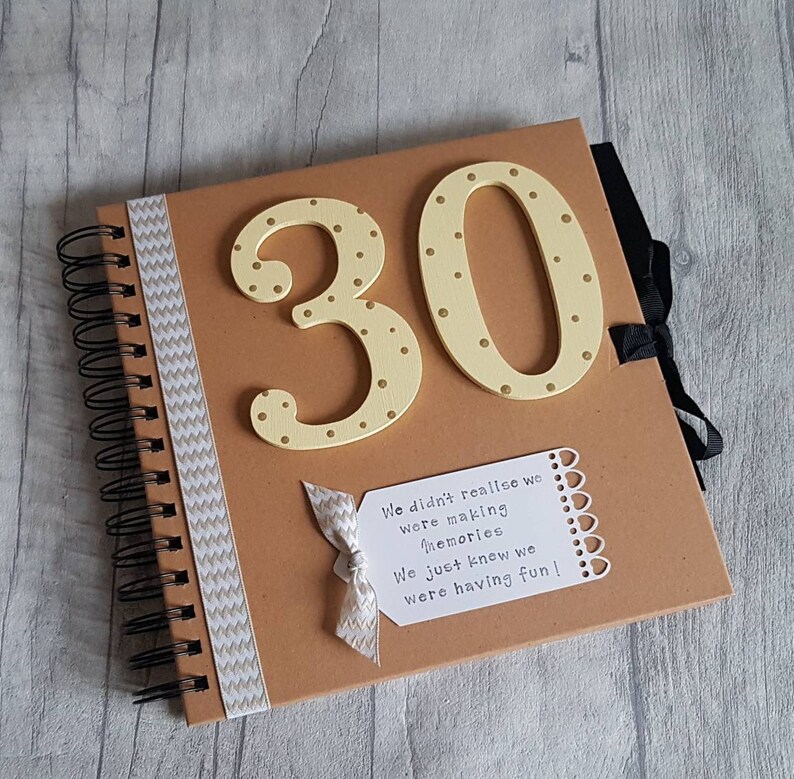 30
We didn't realise we
were making
Memories
We just knew we
were having fun!